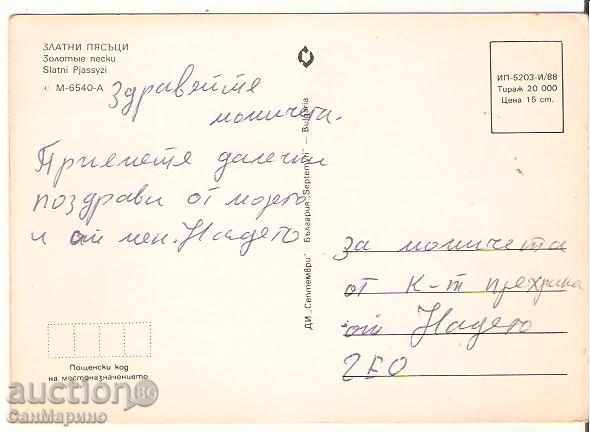 ЗЛАТНИ ПЯСЪЦИ
Золотые пески
Slatni Pjassyzi
М-6540-А
Здравейте
момичета.
Приемете далечни
поздрави от морето
и от мен. Надето
ДИ „Септември" България „Septemvri" — Bulgaria
ИП-5203-И/88
Тираж 20 000
Цена 15 ст.
за момичета
от К-т прехрана
от Надето
ГЕО
Пощенски код
на местоназначението
auction BG
СанМарино